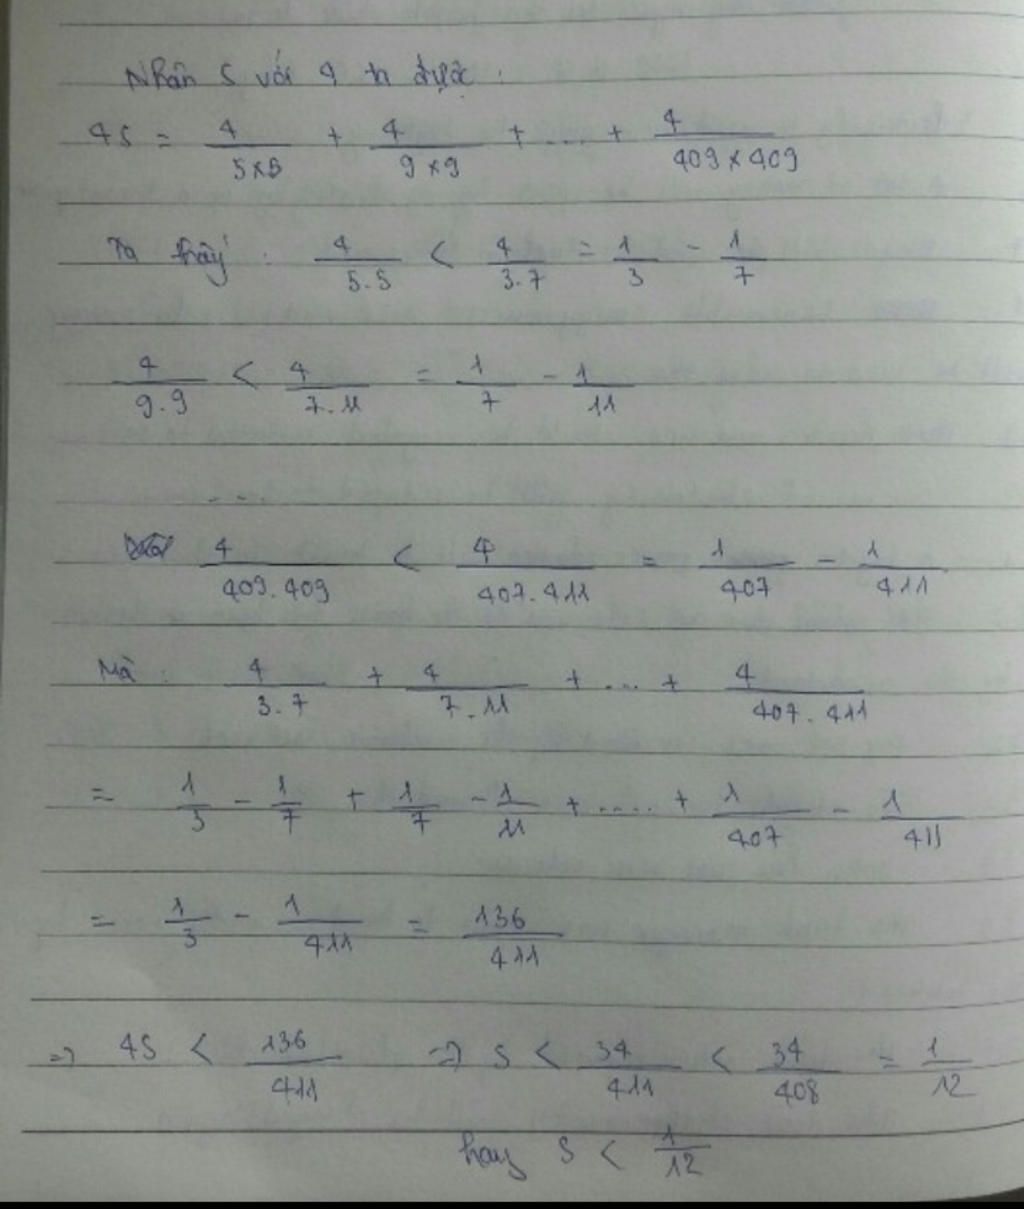 Nhân S với 4 ta được :
4S = 4/(5×5) + 4/(9×9) + ... + 4/(409×409)
Ta thấy : 4/(5.5) < 4/(3.7) = 1/3 - 1/7
4/(9.9) < 4/(7.11) = 1/7 - 1/11
...
4/(409.409) < 4/(407.411) = 1/407 - 1/411
Mà : 4/(3.7) + 4/(7.11) + ... + 4/(407.411)
= 1/3 - 1/7 + 1/7 - 1/11 + .... + 1/407 - 1/411
= 1/3 - 1/411 = 136/411
=> 4S < 136/411 => S < 34/411 < 34/408 = 1/12
hay S < 1/12